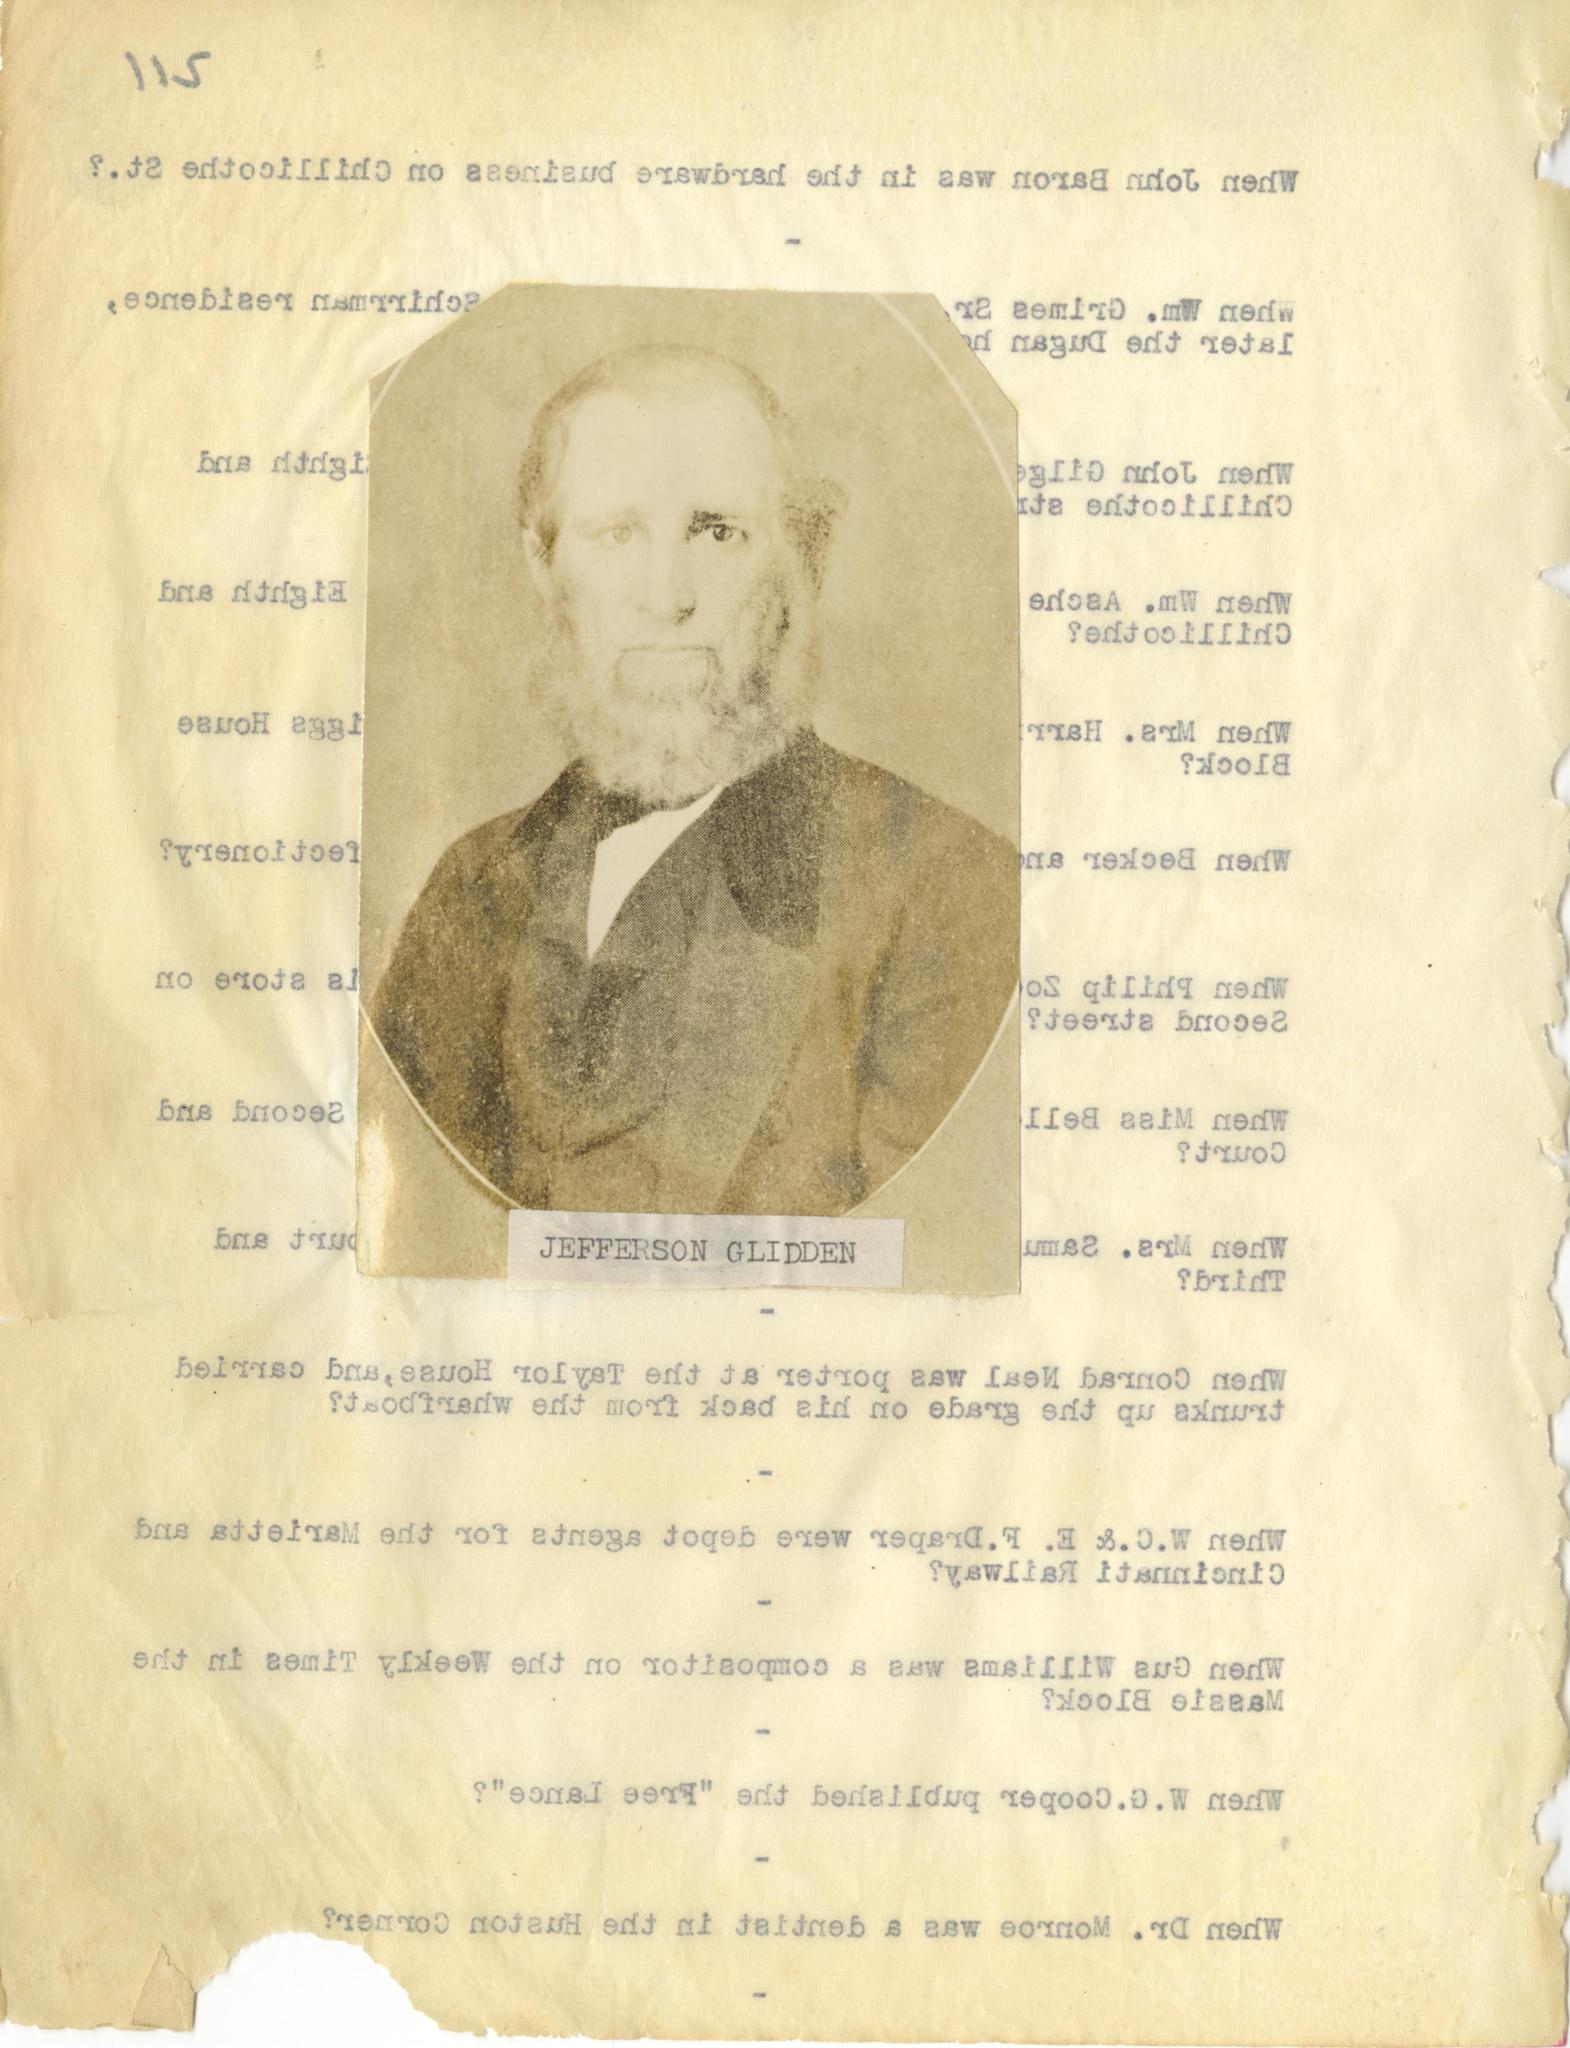 112
When John Baron was in the hardware business on Chillicothe St.?
-
When Wm. Grimes Sr. Schirrman residence,
later the Dugan
When John Eighth and
Chillicothe
When Wm. Asche Eighth and
Chillicothe?
When Mrs. House
Block?
When Becker
When Phillip store on
Second street?
When Miss Second and
Court?
When Mrs. and
Third?
JEFFERSON GLIDDEN
-
When Conrad Neal was porter at the Taylor House,and carried
trunks up the grade on his back from the wharfboat?
-
When W.C.& E. F.Draper were depot agents for the Marietta and
Cincinnati Railway?
-
When Gus Williams was a compositor on the Weekly Times in the
Massie Block?
-
When W.G.Cooper published the "Free Lance"?
-
When Dr. Monroe was a dentist in the Huston Corner?
-